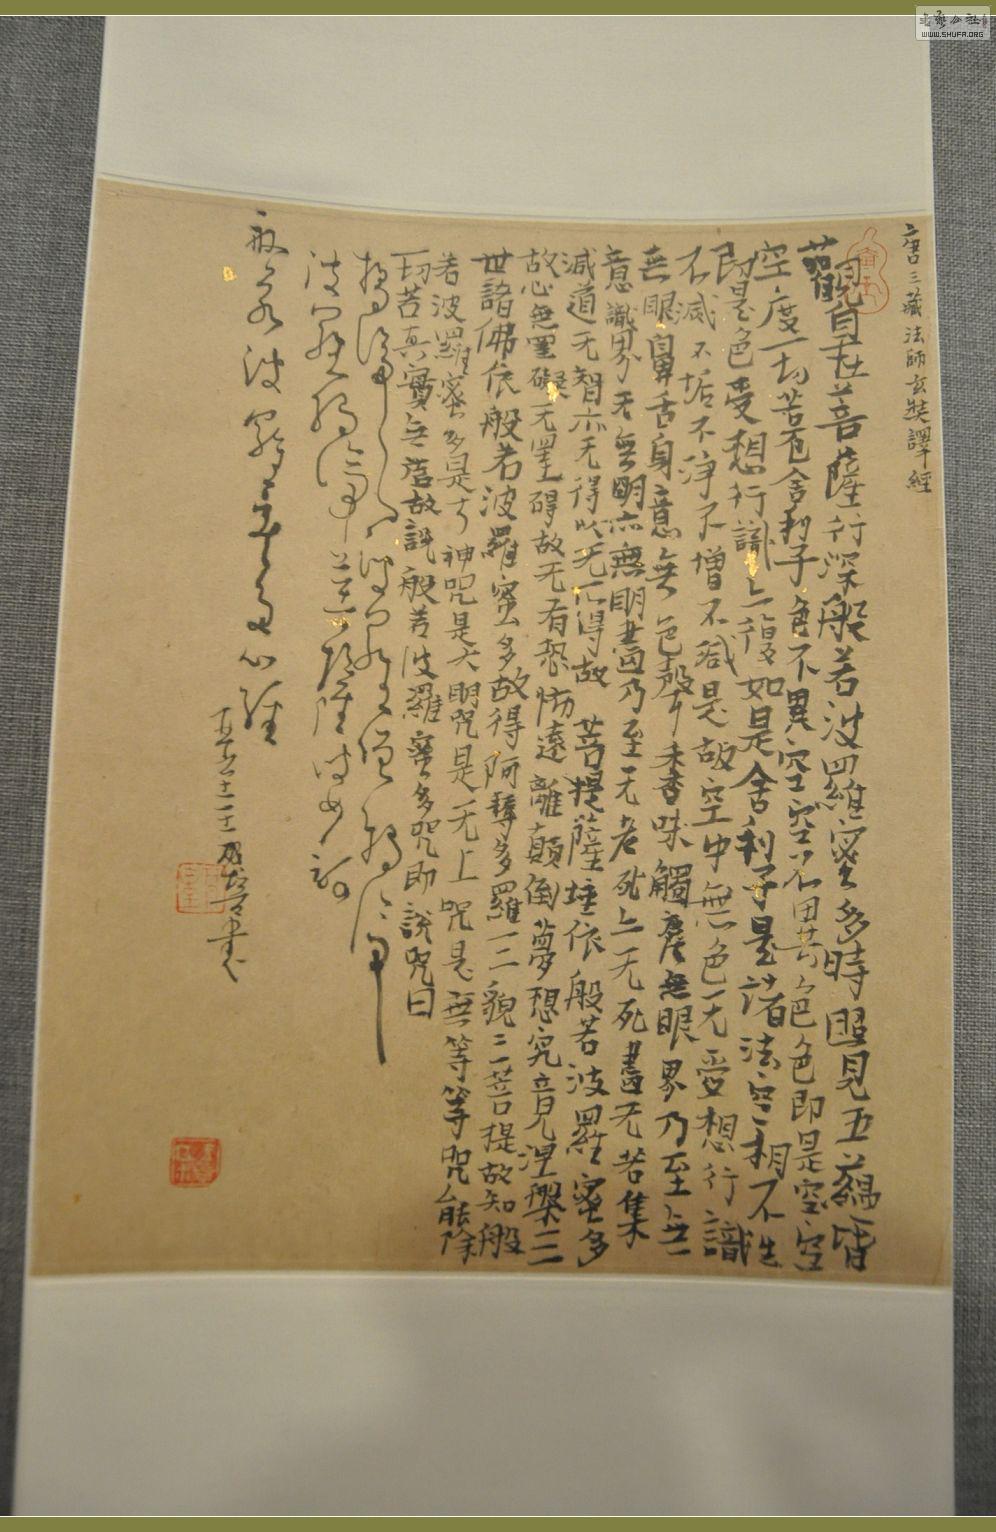 唐三藏法師玄奘譯經
觀自在菩薩行深般若波羅蜜多時照見五蘊皆
空度一切苦厄舍利子色不異空空不異色色即是空空
即是色受想行識亦復如是舍利子是諸法空相不生
不滅不垢不淨不增不減是故空中無色无受想行識
無眼鼻舌身意無色聲香味觸處無眼界乃至無
意識界无無明亦無明盡乃至无老死亦无死盡无苦集
滅道无智亦无得以无所得故菩提薩埵依般若波羅蜜多
故心無罣礙无罣碍故无有恐怖遠離顛倒夢想究竟涅槃三
世諸佛依般若波羅蜜多故得阿耨多羅三藐三菩提故知般
若波羅蜜多是大神咒是大明咒是无上咒是無等等咒能除
一切苦真實無虛故說般若波羅蜜多咒即說咒曰
揭諦揭諦波羅揭諦
波羅僧揭諦菩提薩婆訶
般若波羅蜜多心經
書
WWW.SHUFA.ORG